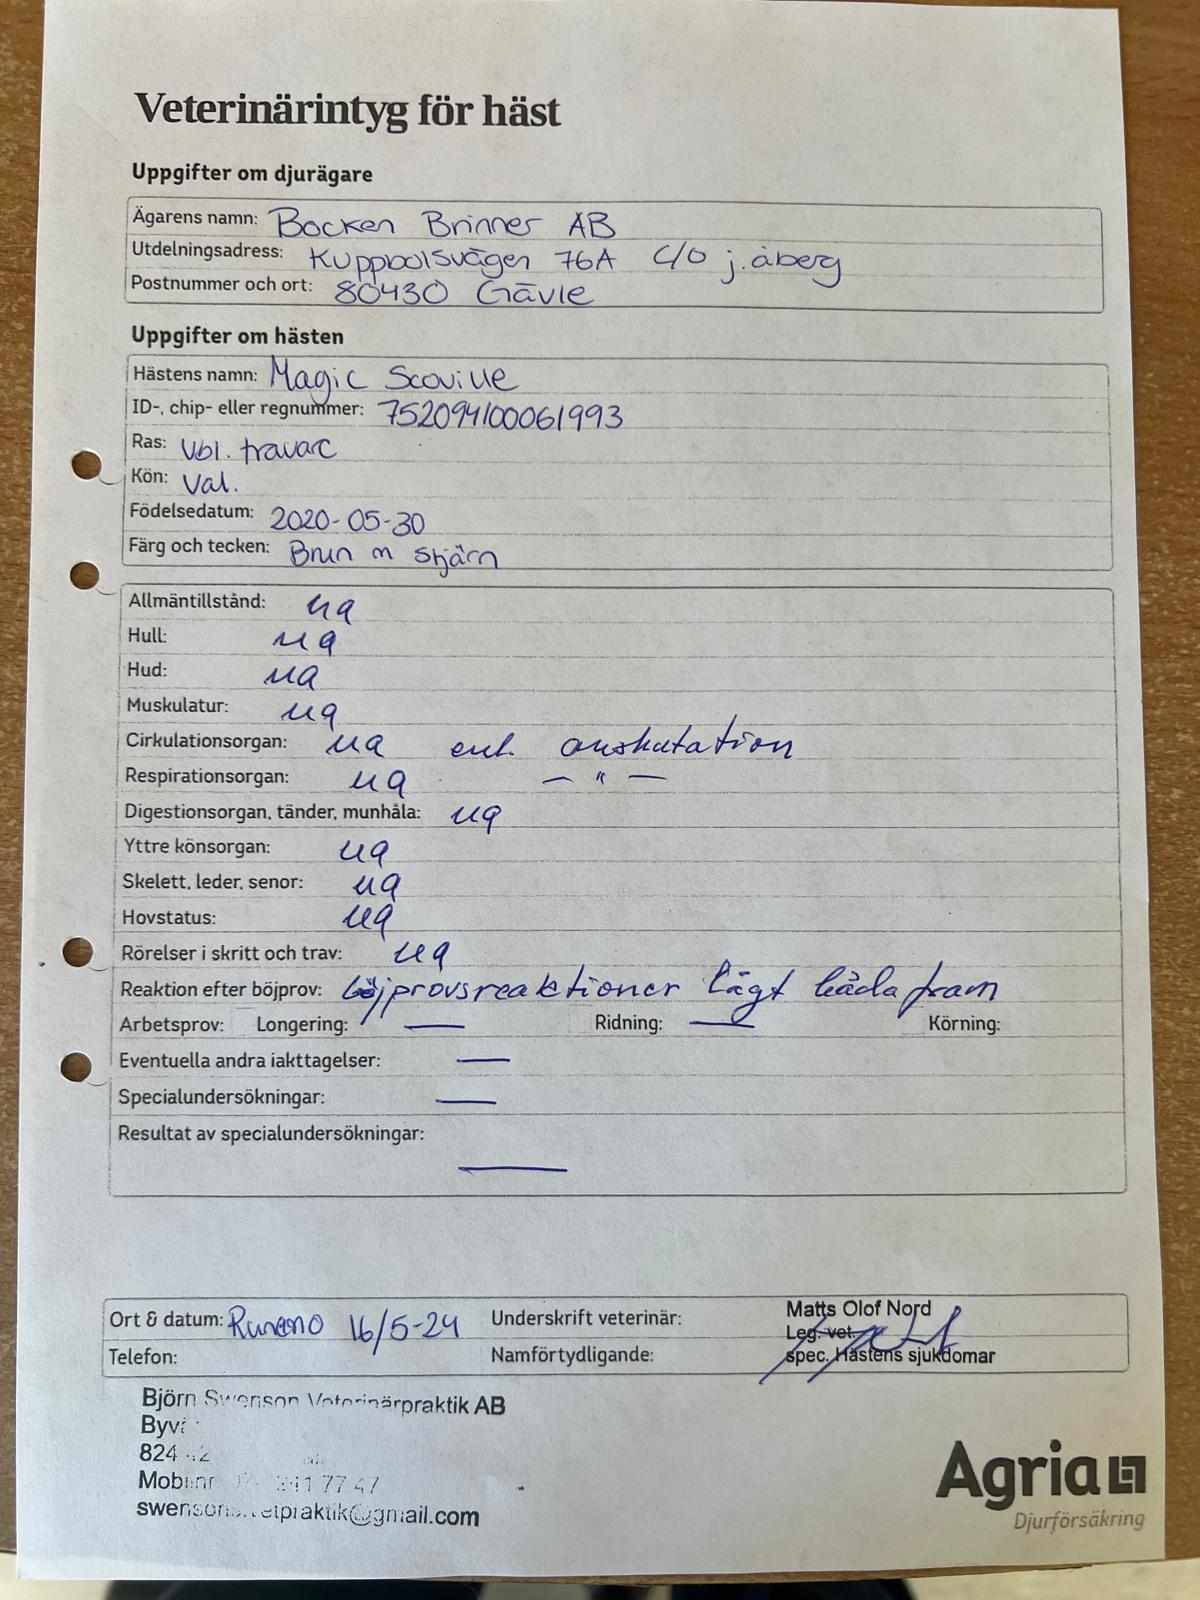 Veterinärintyg för häst
Uppgifter om djurägare
Ägarens namn: Bocken Brinner AB
Utdelningsadress: Kuppbolsvägen 76A C/O j. åberg
Postnummer och ort: 80430 Gävle
Uppgifter om hästen
Hästens namn: Magic Scoville
ID-, chip- eller regnummer: 752094100061993
Ras: vbl. travare
Kön: Val.
Födelsedatum: 2020-05-30
Färg och tecken: Brun m stjärn
Allmäntillstånd: ua
Hull: ua
Hud: ua
Muskulatur: ua
Cirkulationsorgan: ua enl. auskutation
Respirationsorgan: ua — " —
Digestionsorgan, tänder, munhåla: ua
Yttre könsorgan: ua
Skelett, leder, senor: ua
Hovstatus: ua
Rörelser i skritt och trav: ua
Reaktion efter böjprov: böjprovsreaktioner lågt båda fram
Arbetsprov: Longering: — Ridning: — Körning:
Eventuella andra iakttagelser: —
Specialundersökningar: —
Resultat av specialundersökningar:
—
Ort & datum: 16/5-24 Underskrift veterinär: Matts Olof Nord
Leg. vet.
Telefon: Namförtydligande: spec. Hästens sjukdomar
Björn Swenson Veterinärpraktik AB
824
77 47
@gmail.com
Agria
Djurförsäkring